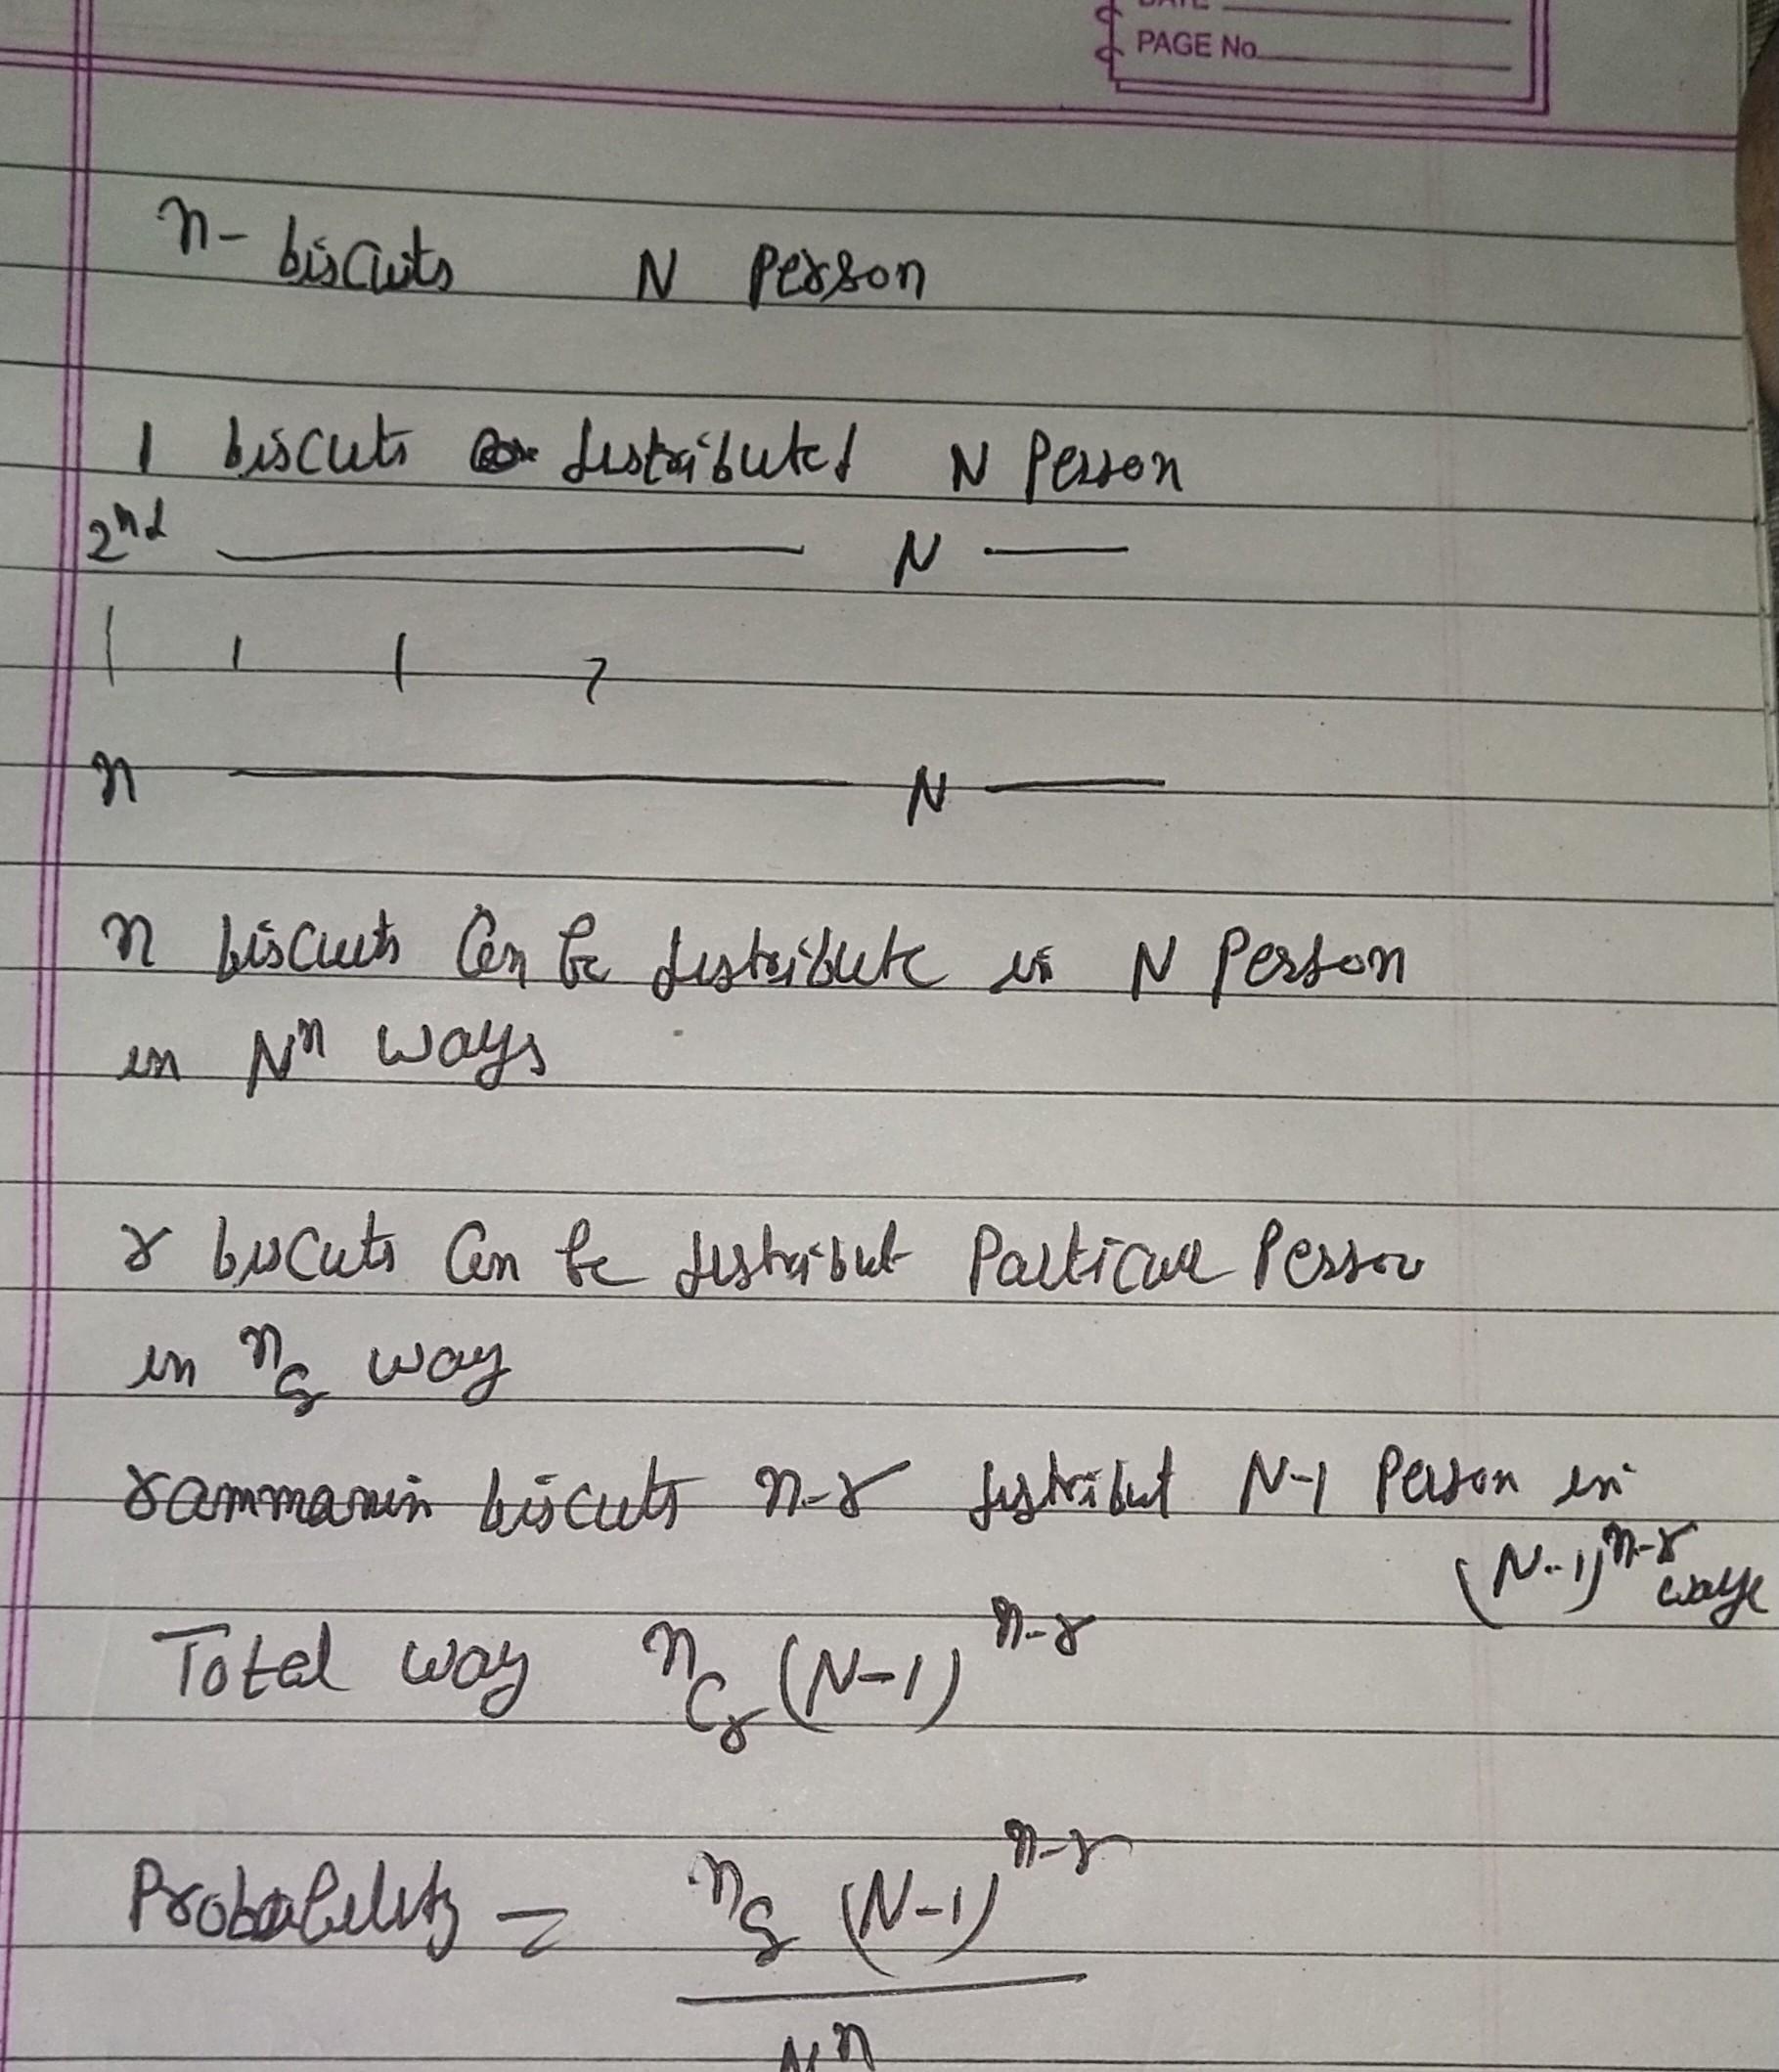 DATE
PAGE No.
n- biscuits N Person
1 biscuts distributed N Person
2nd ——— N ——
n ——— N ——
n biscuits Can be distribute in N Person
in Nⁿ ways
r biscuts Can be distribut Particular Person
in ⁿCᵣ way
rammanin biscuts n-r distribut N-1 Person in
(N-1)ⁿ⁻ʳ ways
Total way ⁿCᵣ (N-1)ⁿ⁻ʳ
Probability = ⁿCᵣ (N-1)ⁿ⁻ʳ
Nⁿ